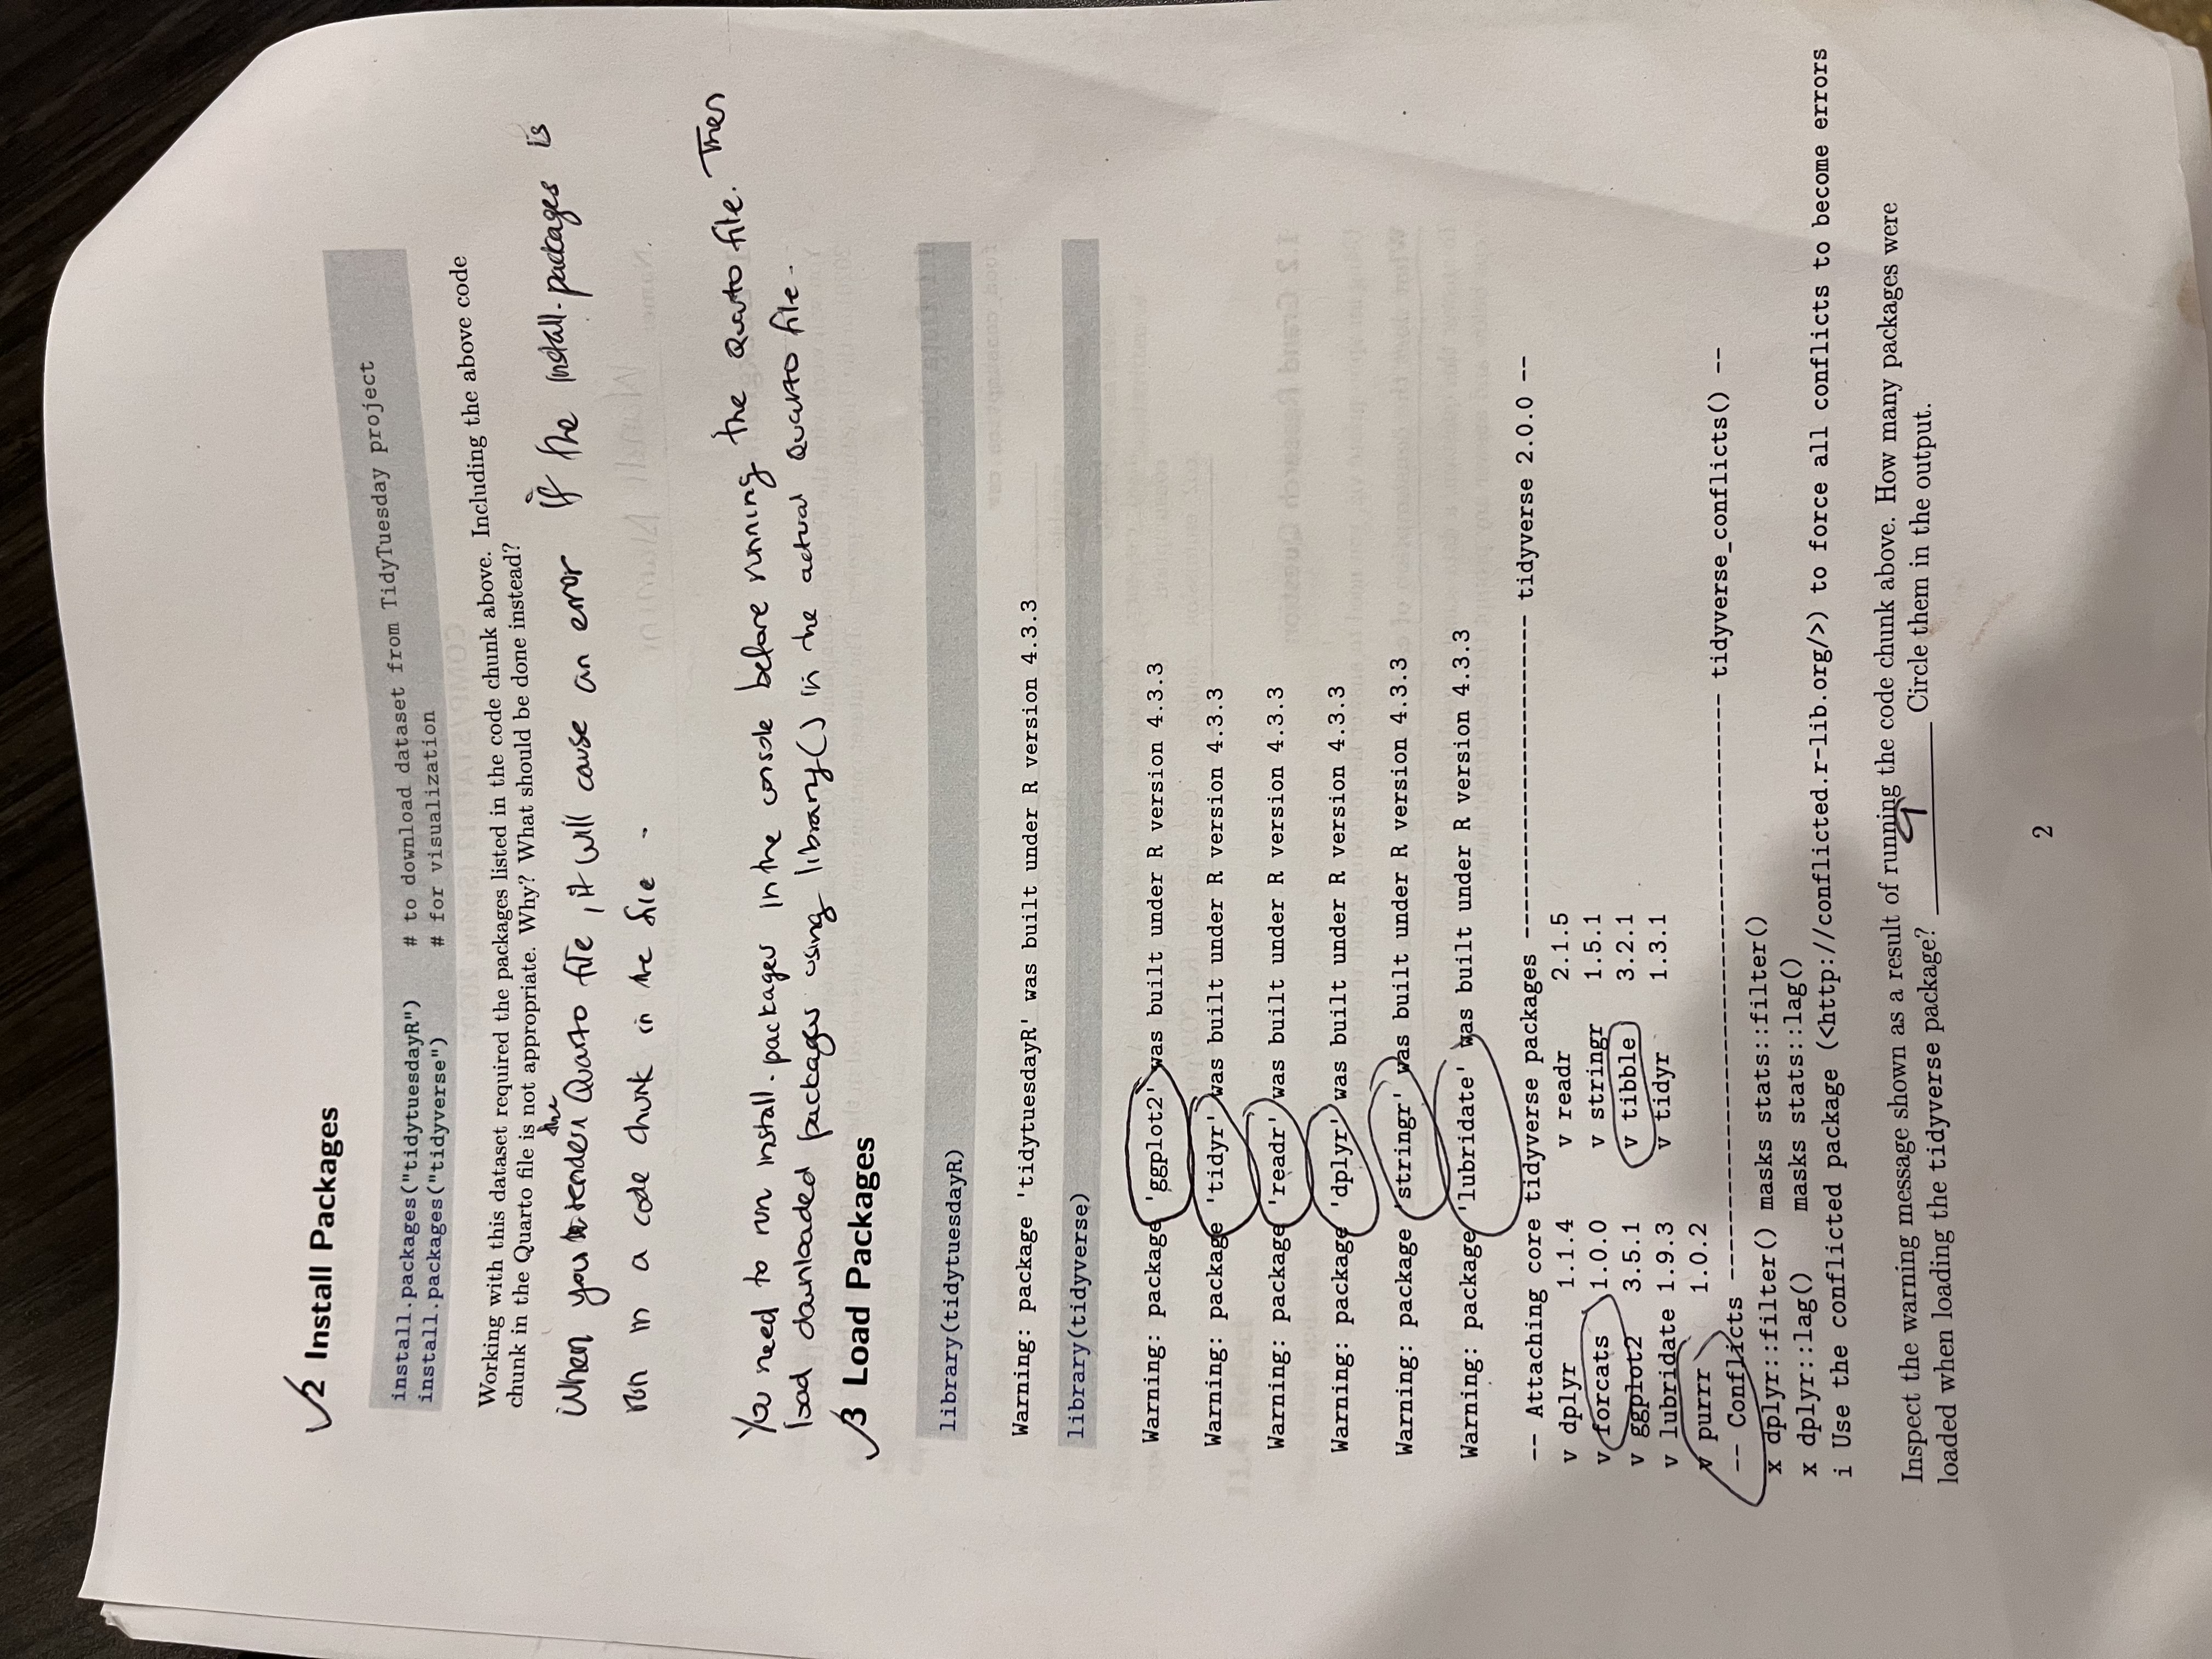 2 Install Packages
install.packages("tidytuesdayR") # to download dataset from TidyTuesday project
install.packages("tidyverse") # for visualization
Working with this dataset required the packages listed in the code chunk above. Including the above code
chunk in the Quarto file is not appropriate. Why? What should be done instead?
When you render the Quarto file, it will cause an error if the install.packages is
run in a code chunk in the file.
You need to run install.packages in the console before running the Quarto file. Then
load downloaded packages using library() in the actual Quarto file.
3 Load Packages
library(tidytuesdayR)
Warning: package 'tidytuesdayR' was built under R version 4.3.3
library(tidyverse)
Warning: package 'ggplot2' was built under R version 4.3.3
Warning: package 'tidyr' was built under R version 4.3.3
Warning: package 'readr' was built under R version 4.3.3
Warning: package 'dplyr' was built under R version 4.3.3
Warning: package 'stringr' was built under R version 4.3.3
Warning: package 'lubridate' was built under R version 4.3.3
-- Attaching core tidyverse packages ------------------------ tidyverse 2.0.0 --
v dplyr 1.1.4 v readr 2.1.5
v forcats 1.0.0 v stringr 1.5.1
v ggplot2 3.5.1 v tibble 3.2.1
v lubridate 1.9.3 v tidyr 1.3.1
v purrr 1.0.2
-- Conflicts ------------------------------------------ tidyverse_conflicts() --
x dplyr::filter() masks stats::filter()
x dplyr::lag() masks stats::lag()
i Use the conflicted package (<http://conflicted.r-lib.org/>) to force all conflicts to become errors
Inspect the warning message shown as a result of running the code chunk above. How many packages were
loaded when loading the tidyverse package? 9 Circle them in the output.
2